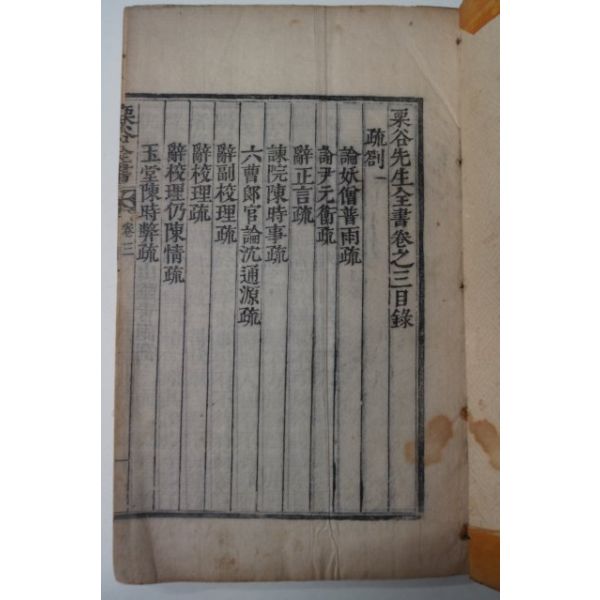 栗谷先生全書卷之三目錄
疏劄一
論妖僧普雨疏
論尹元衡疏
辭正言疏
諫院陳時事疏
六曹郞官論沈通源疏
辭副校理疏
辭校理疏
辭校理仍陳情疏
玉堂陳時弊疏
栗谷全書
卷三